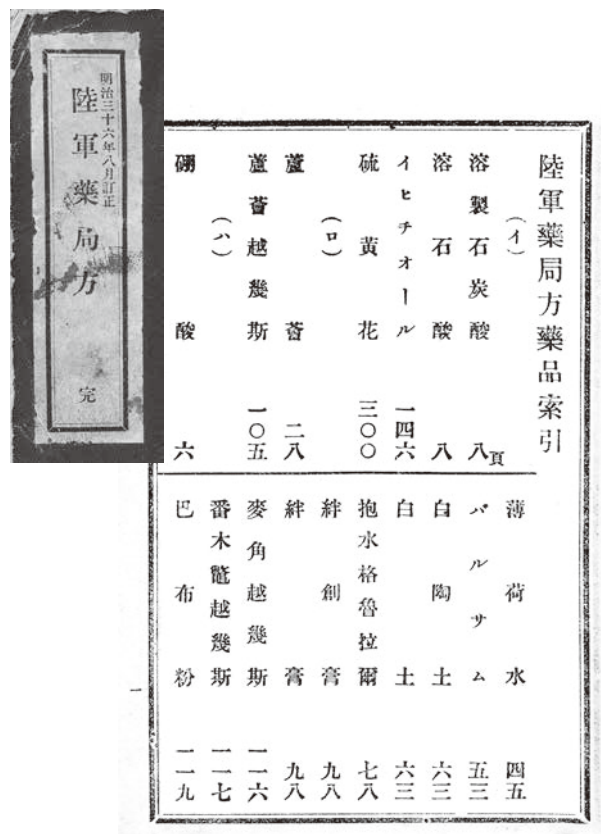 明治三十六年八月訂正
陸軍藥局方 完
陸軍藥局方藥品索引
(イ)
溶製石炭酸 八頁
溶石酸 八
イヒチオール 一四六
硫黃花 三〇〇
(ロ)
蘆薈 二八
蘆薈越幾斯 一〇五
(ハ)
硼酸 六
薄荷水 四五
バルサム 五三
白陶土 六三
白土 六三
抱水格魯拉爾 七八
絆創膏 九八
絆膏 九八
麥角越幾斯 一一六
番木鼈越幾斯 一一七
巴布粉 一一九
一